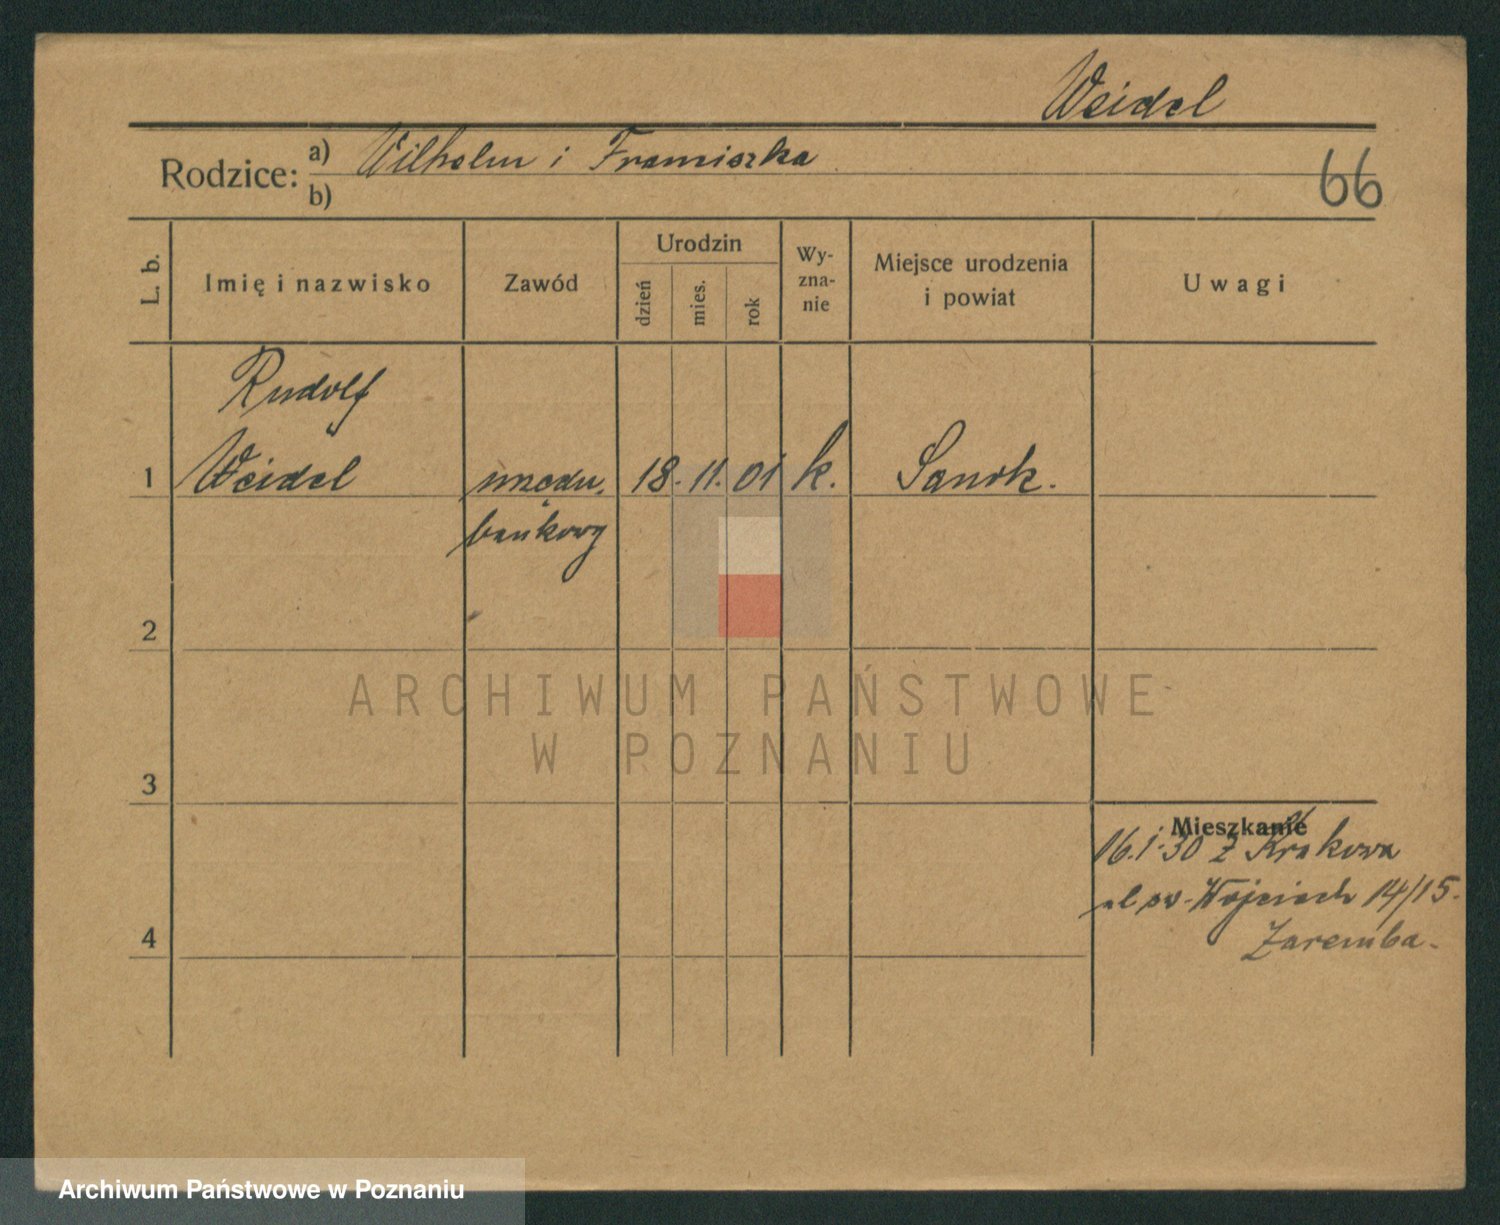 Weidel
Rodzice: a) Wilhelm i Franciszka
b)
66
L. b.
Imię i nazwisko
Zawód
Urodzin
dzień
mies.
rok
Wy-
zna-
nie
Miejsce urodzenia
i powiat
Uwagi
Rudolf
1 Weidel urzędn. 18. 11. 01 k. Sanok.
bankowy
2
ARCHIWUM PAŃSTWOWE
W POZNANIU
3
Mieszkanie
16.1.30 z Krakowa
ul św. Wojciech 14/15.
4
Zaremba.
Archiwum Państwowe w Poznaniu